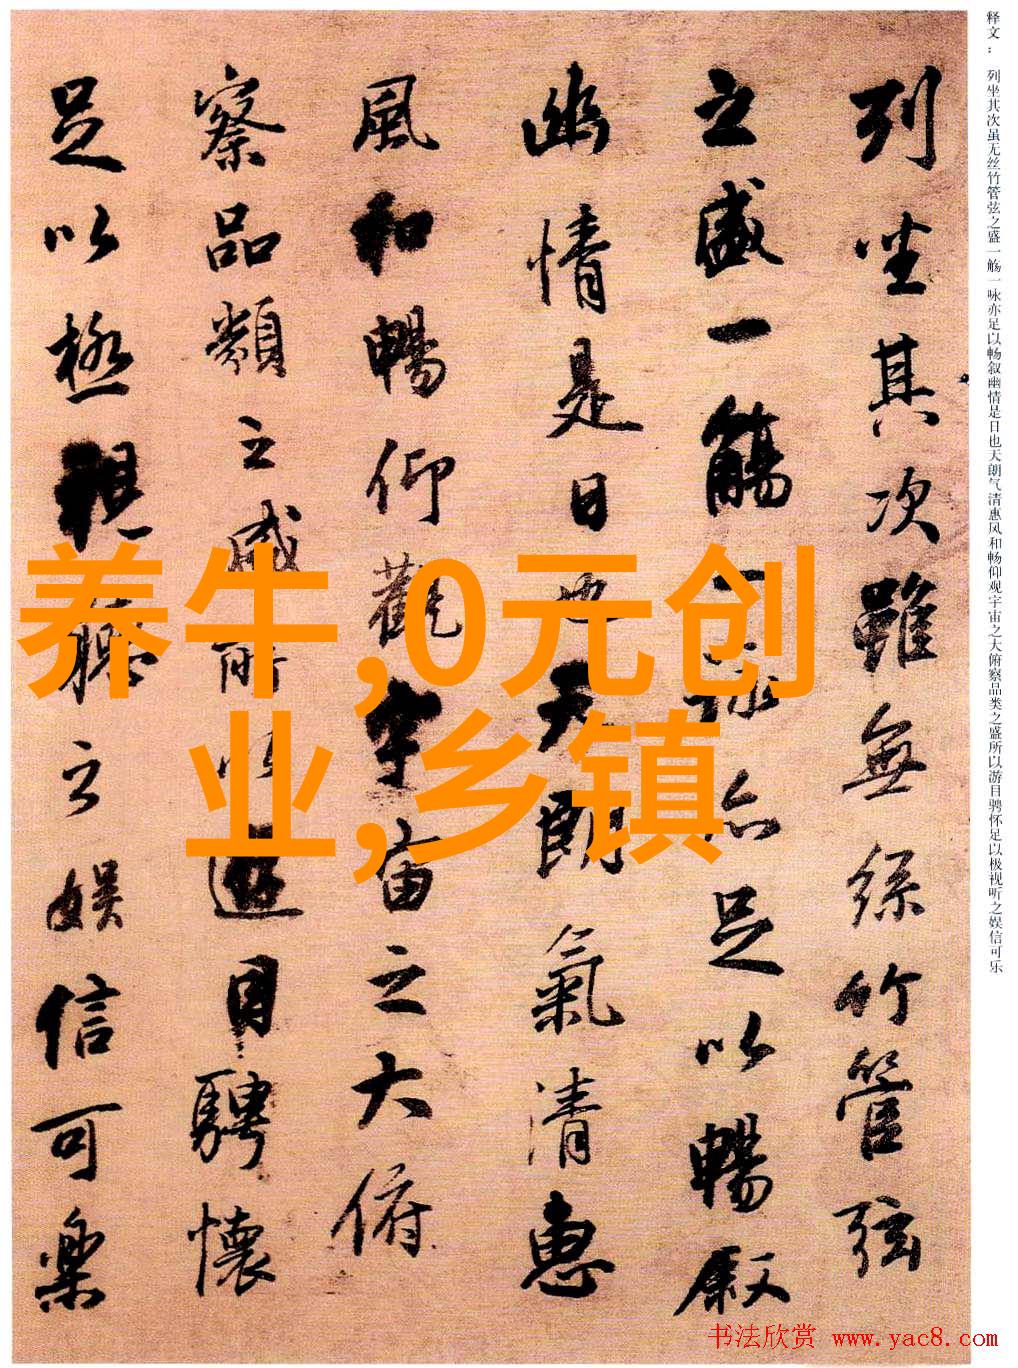 释文：列坐其次虽无丝竹管弦之盛一觞一咏亦足以畅叙幽情是日也天朗气清惠风和畅仰观宇宙之大俯察品类之盛所以游目骋怀足以极视听之娱信可乐
列坐其次雖無絲竹管弦
之盛一觴一詠亦足以暢叙
幽情是日也天朗氣清惠
風和暢仰觀宇宙之大俯
察品類之盛所以遊目騁懷
足以極視聽之娱信可樂
养牛,0元创
业,乡镇
书法欣赏 www.yac8.com